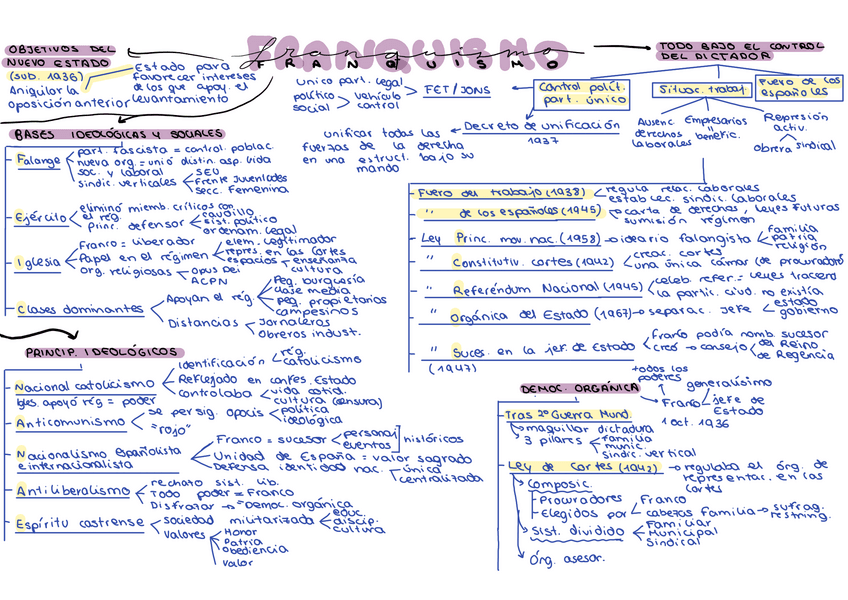 franquismo
FRANQUISMO
OBJETIVOS DEL
NUEVO ESTADO
(sub. 1936)
Aniquilar la
oposición anterior
Estado para
favorecer intereses
de los que apoy. el
levantamiento
Único part. legal
político > vehículo > FET/JONS
social control
TODO BAJO EL CONTROL
DEL DICTADOR
Control polít.
part. único
Situac. trabaj.
Fuero de los
españoles
Decreto de unificación
1937
unificar todas las
fuerzas de la derecha
en una estruct. bajo su
mando
Ausenc. Empresarios
derechos " benefic.
laborales
Represión
activ.
obrera sindical
BASES IDEOLÓGICAS Y SOCIALES
Falange
part. fascista = control poblac.
nueva org. = unió distin. asp. vida
soc. y laboral
sindic. verticales
SEU
Frente Juventudes
Secc. Femenina
Ejército
eliminó miemb. críticos con
el rég.
Princ. defensor
caudillo
sist. político
ordenam. legal
Iglesia
Franco = liberador
Papel en el régimen
elem. legitimador
repres. en las Cortes
espacios
enseñanza
cultura
org. religiosas
Opus Dei
ACPN
Clases dominantes
Apoyan el rég.
Peq. burguesía
clase media
peq. propietarios
campesinos
Distancias
Jornaleros
Obreros indust.
Fuero del trabajo (1938)
regula relac. laborales
establec. sindic. laborales
" de los españoles (1945)
carta de derechos, leyes futuras
sumisión régimen
Ley Princ. mov. nac. (1958) → ideario falangista
familia
patria
religión
" Constitutiv. cortes (1942)
creac. cortes
una única cámar. de procuradores
" Referéndum Nacional (1945)
celeb. refer. = leyes tracend
la partic. ciud. no existía
" Orgánica del Estado (1967) → separac. Jefe
estado
gobierno
" Suces. en la jef. de Estado
(1947)
franco podía nomb. sucesor
creó → consejo
del Reino
de Regencia
PRINCIP. IDEOLÓGICOS
Nacional catolicismo
Igles. apoyó rég = poder
Identificación
rég.
catolicismo
Reflejado en confes. Estado
Controlaba
vida cotid.
cultura (censura)
Anticomunismo
se persig. opocis
política
ideológica
"rojo"
Nacionalismo españolista
e internacionalista
Franco = sucesor
personaj
eventos
históricos
Unidad de España = valor sagrado
Defensa identidad nac.
única
centralizada
Antiliberalismo
rechazo sist. lib.
Todo poder = Franco
Disfrazar → "Democ. orgánica
Espíritu castrense
sociedad militarizada
educ.
discip.
cultura
valores
Honor
Patria
obediencia
valor
DEMOC. ORGÁNICA
todos los
poderes
Franco
generalísimo
jefe de
Estado
1 oct. 1936
Tras 2º Guerra Mund.
maquillar dictadura
3 pilares
familia
munic.
sindic. vertical
Ley de Cortes (1942)
regulaba el órg. de
representac. en las
Cortes
Composic.
Procuradores
Elegidos por
Franco
cabezas familia → sufrag.
restring.
Sist. dividido
Familiar
Municipal
Sindical
Órg. asesor.